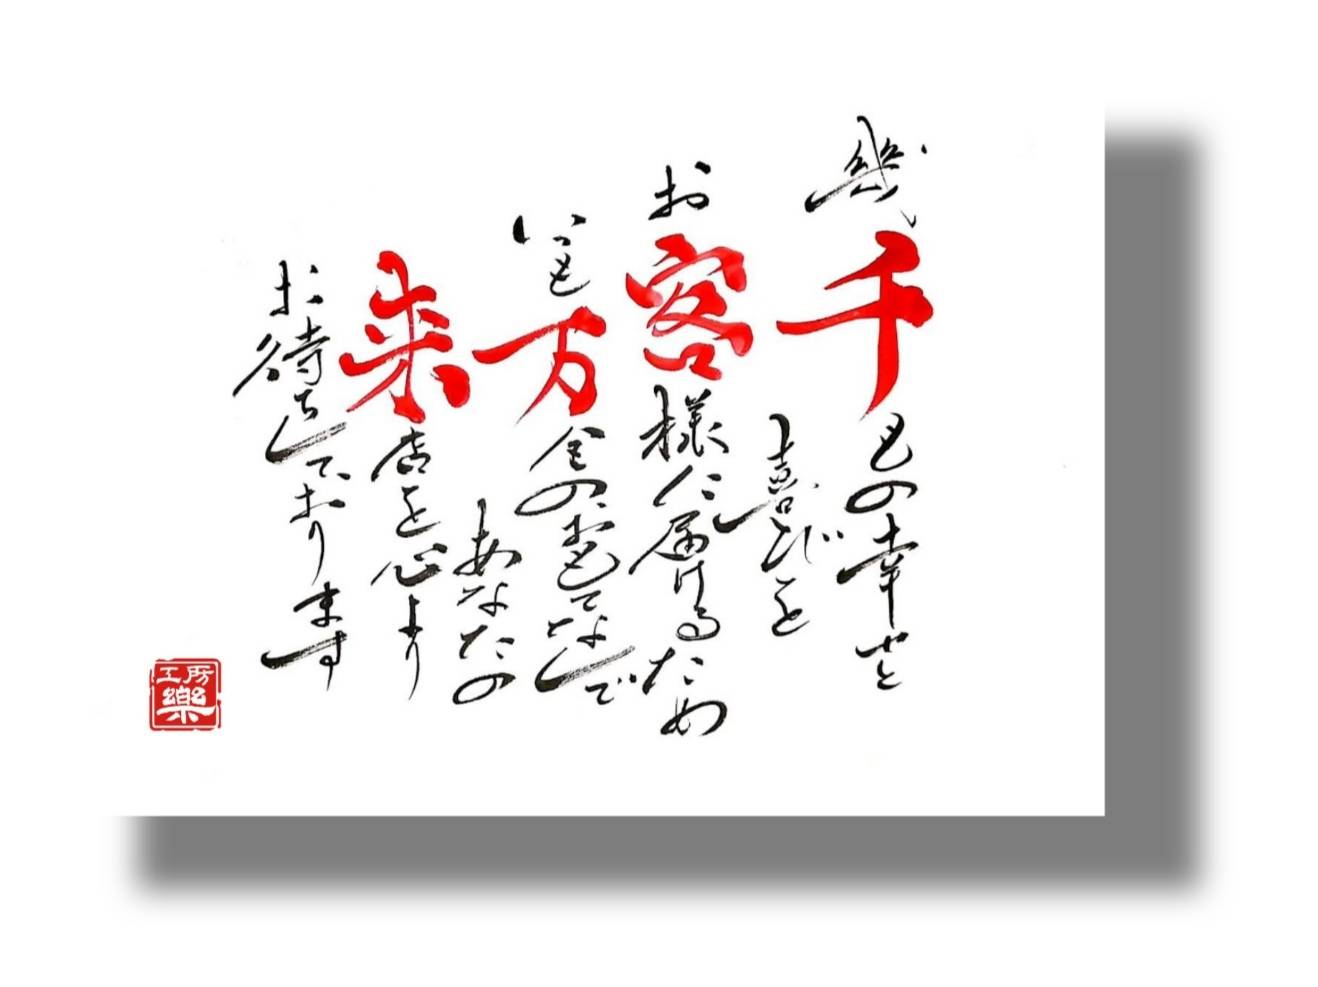 幾千もの幸せと
喜びを
お客様に届けるため
いつも万全のおもてなしで
あなたの
来店を心より
お待ちしております
工房
樂